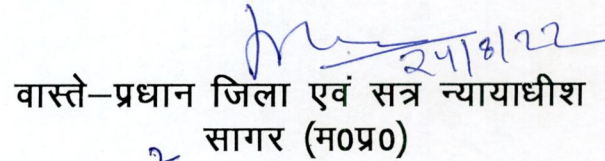 24/8/22
वास्ते–प्रधान जिला एवं सत्र न्यायाधीश
सागर (म0प्र0)